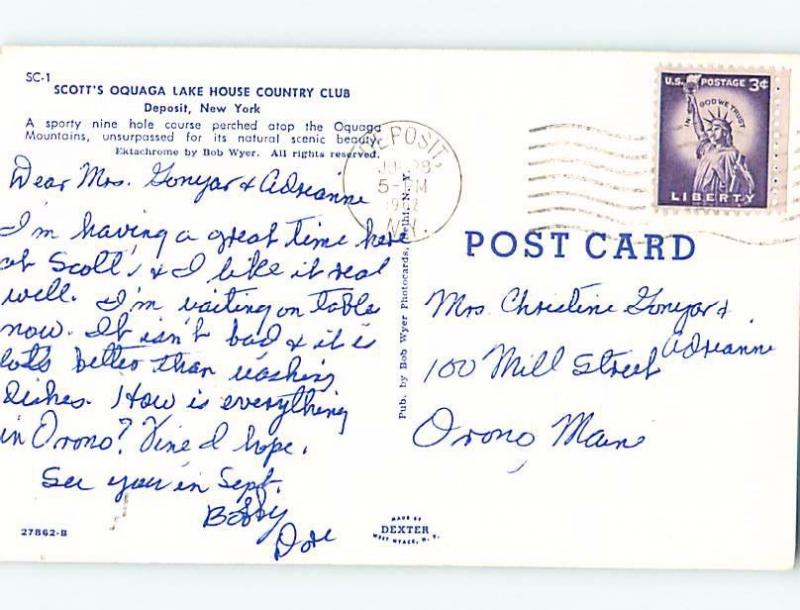 SC-1
SCOTT'S OQUAGA LAKE HOUSE COUNTRY CLUB
Deposit, New York
A sporty nine hole course perched atop the Oquaga
Mountains, unsurpassed for its natural scenic beauty.
Ektachrome by Bob Wyer. All rights reserved.
Dear Mrs. Gonyar & Adreanne
I'm having a great time here
at Scott's & I like it real
well. I'm waiting on table
now. It isn't bad & it is
lots better than washing
dishes. How is everything
in Orono? Fine I hope.
See you in Sept.
Bobby
Dore
27862-B
DEPOSIT,
28
5-PM
N.Y.
Pub. by Bob Wyer Photocards, Delhi, N. Y.
MADE BY
DEXTER
WEST NYACK, N. Y.
U.S. POSTAGE 3¢
IN GOD WE TRUST
LIBERTY
POST CARD
Mrs Christine Gonyar &
Adreanne
100 Mill Street
Orono, Maine